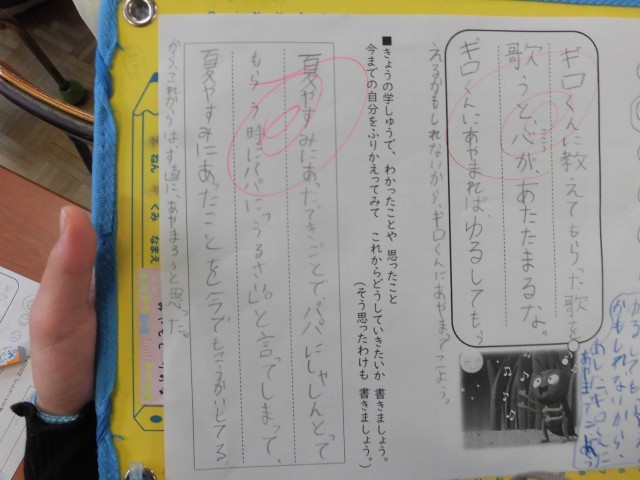 ギロくんに教えてもらった歌を
歌うと、心が、あたたまるな。
ギロくんにあやまれば、ゆるしてもら
えるかもしれないから、ギロくんにあやまってこよう。
■きょうの学しゅうで、わかったことや 思ったこと
今までの自分をふりかえってみて これからどうしていきたいか 書きましょう。
(そう思ったわけも 書きましょう。)
夏やすみにあったできごとで、パパにしゃしんとって
もらう時にパパに「うるさい。」と言てしまって、
夏やすみにあったことを今でもこうかいしてる
からこれからはす直にあやまろうと思った。
ねん
くみ
なまえ